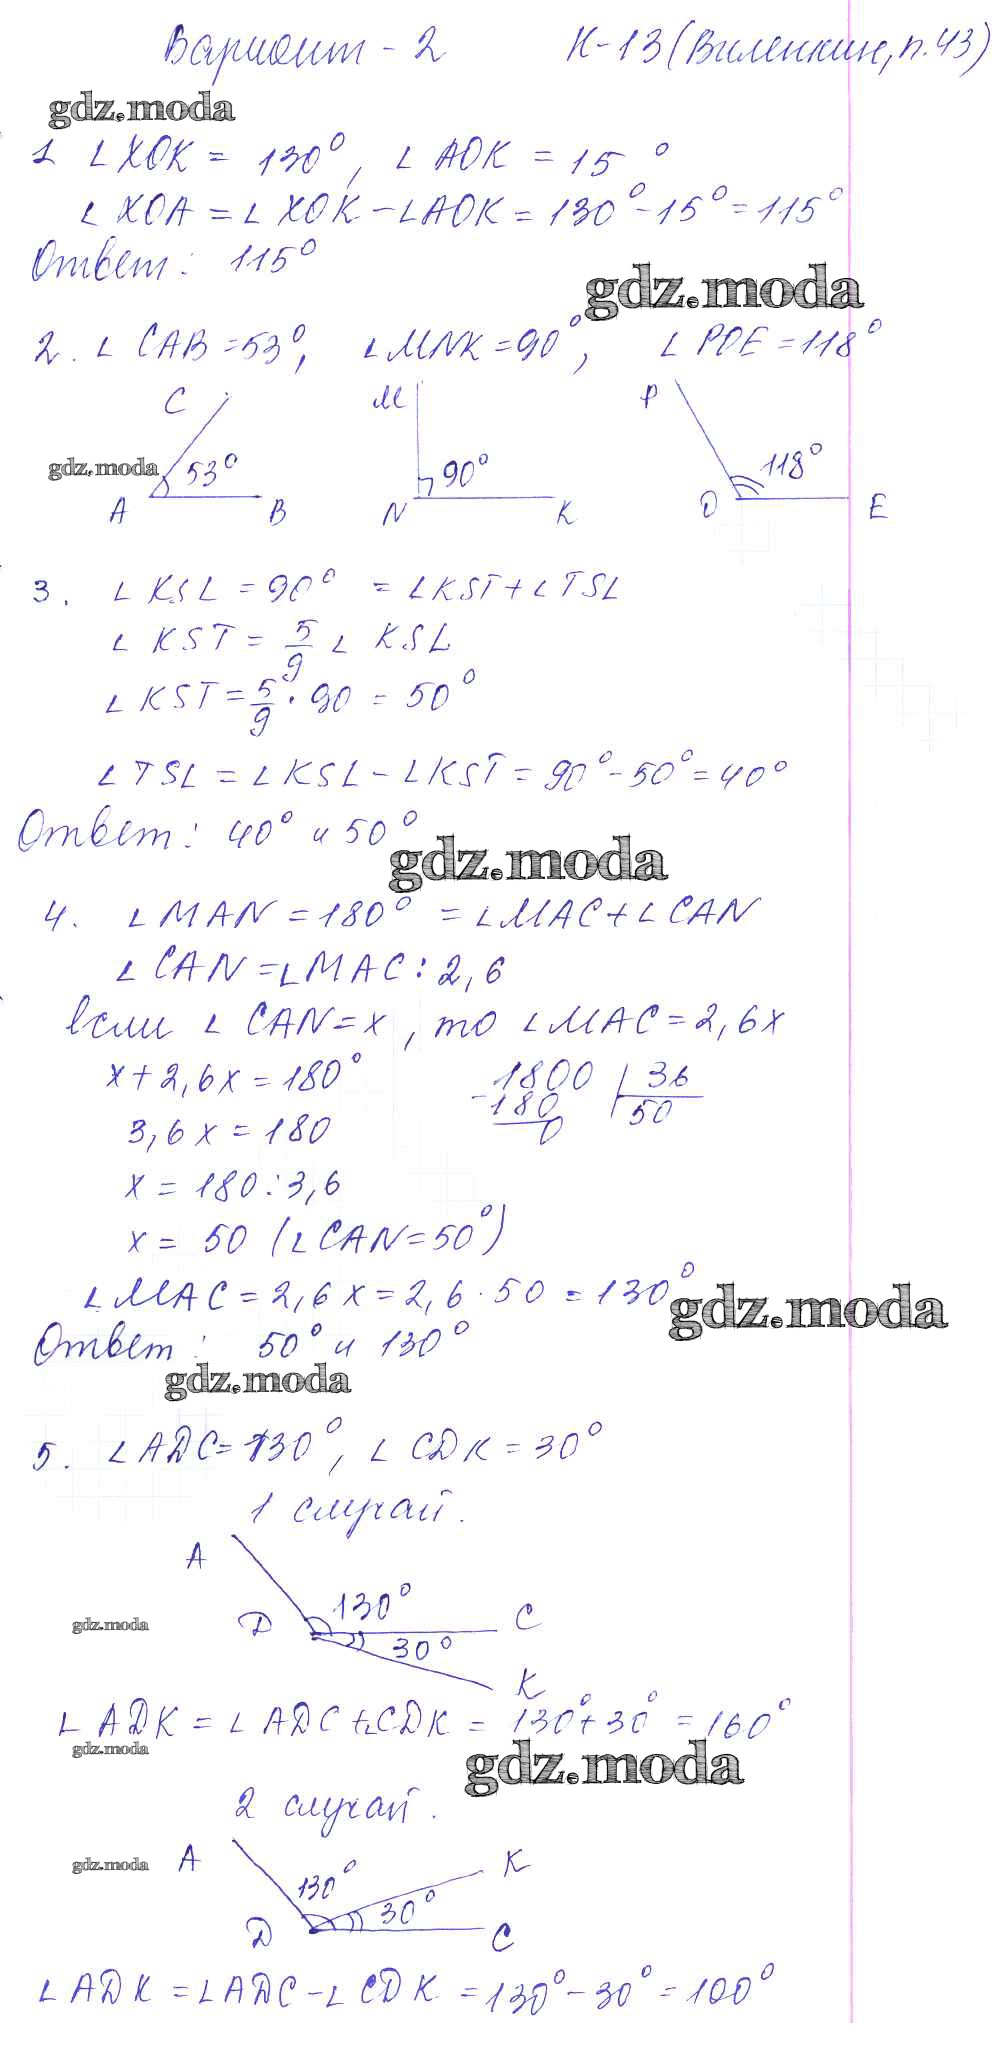 Вариант - 2 К-13 (Виленкин, п.43)
gdz.moda
1 ∠ XOK = 130°, ∠ AOK = 15°
∠ XOA = ∠ XOK - ∠AOK = 130° - 15° = 115°
Ответ: 115°
gdz.moda
2. ∠ CAB = 53°, ∠MNK = 90°, ∠ POE = 118°
C M P
gdz.moda 53° 90° 118°
A B N K O E
3. ∠ KSL = 90° = ∠KST + ∠TSL
∠ KST = 5/9 ∠ KSL
∠ KST = 5/9 · 90 = 50°
∠ TSL = ∠ KSL - ∠KST = 90° - 50° = 40°
Ответ: 40° и 50°
gdz.moda
4. ∠ MAN = 180° = ∠MAC + ∠ CAN
∠ CAN = ∠MAC : 2,6
если ∠ CAN = x, то ∠MAC = 2,6x
x + 2,6x = 180° 1800 36
3,6x = 180 -180 50
0
x = 180 : 3,6
x = 50 (∠CAN = 50°)
∠MAC = 2,6x = 2,6 · 50 = 130°
gdz.moda
Ответ: 50° и 130°
gdz.moda
5. ∠ADC = 130°, ∠ CDK = 30°
1 случай.
A
130° C
gdz.moda D
30°
K
∠ ADK = ∠ ADC + ∠CDK = 130° + 30° = 160°
gdz.moda
gdz.moda
2 случай.
gdz.moda A K
130°
30°
D C
∠ ADK = ∠ADC - ∠ CDK = 130° - 30° = 100°